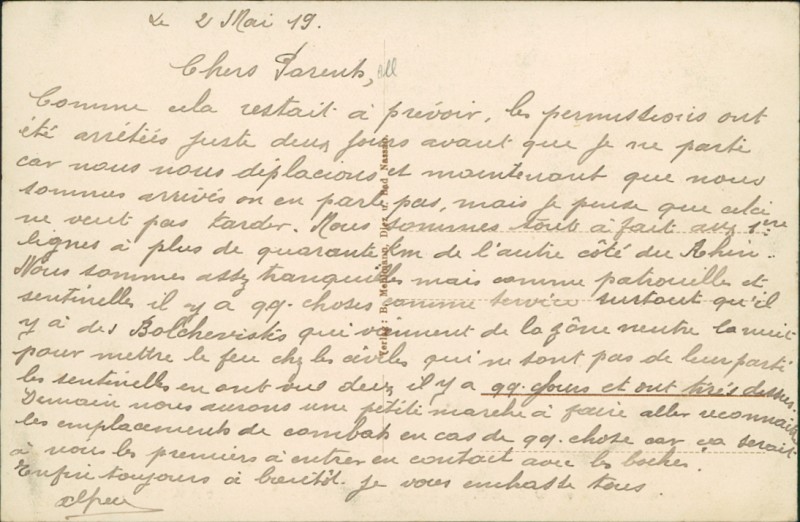 Le 2 Mai 19.
Chers Parents,
Comme cela restait à prévoir, les permissions ont
été arrêtés juste deux jours avant que je ne parte
car nous nous déplacions et maintenant que nous
sommes arrivés on en parle pas, mais je pense que celà
ne veut pas tarder. Nous sommes tout à fait aux 1ère
lignes à plus de quarante km de l'autre côté du Rhin.
Nous sommes assez tranquilles mais comme patrouilles et
sentinelles il y a qq. choses comme service surtout qu'il
y a des Bolchevists qui viennent de la zône neutre la nuit
pour mettre le feu chez les civiles qui ne sont pas de leur parti
les sentinelles en ont vus deux il y a qq. jours et ont tirés dessus.
Demain nous aurons une petite marche à faire aller reconnaitre
les emplacements de combats en cas de qq. chose car ça serait
à nous les premiers à entrer en contact avec les boches.
Enfin toujours à bientôt. Je vous embrasse tous.
Verlag: B. Diez u. Bad Nassau.